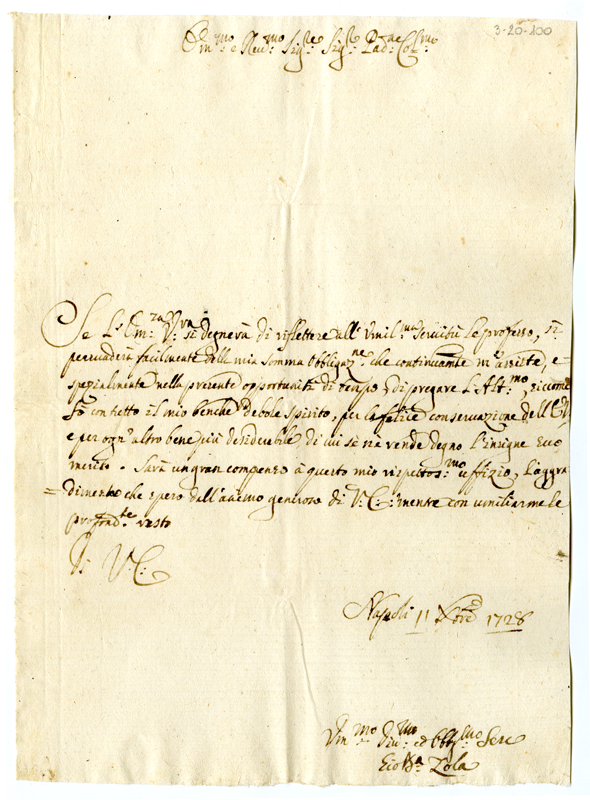 3-20-100
Em.mo e Reu.mo Sig.re Sig.re Pad.ne Col.mo
Se L'Em.za V.ra si degnerà di riflettere all'vmil.ma seruitù le professo, si
persuaderà facilmente della mia somma obbligaz.ne che continuamte m'assiste, e
spezialmente nella presente opportunità di tempo di pregare L'Alt.mo, siccome
fò con tutto il mio benche debole spirito, per la felice conseruazione dell'E.V.
e per ogn'altro bene più desiderabile di cui si ne rende degno l'insigne suo
merito. Sarà un gran compenso à questo mio rispettos.mo uffizio, l'aggra
dimento che spero dall'animo generoso di V.E.: mentre con umiliarmele
profond.te resto
Di V.E.
Napoli 11 Xbre 1728
Vm.mo Diu.mo ed Obb.mo Seru
Zola